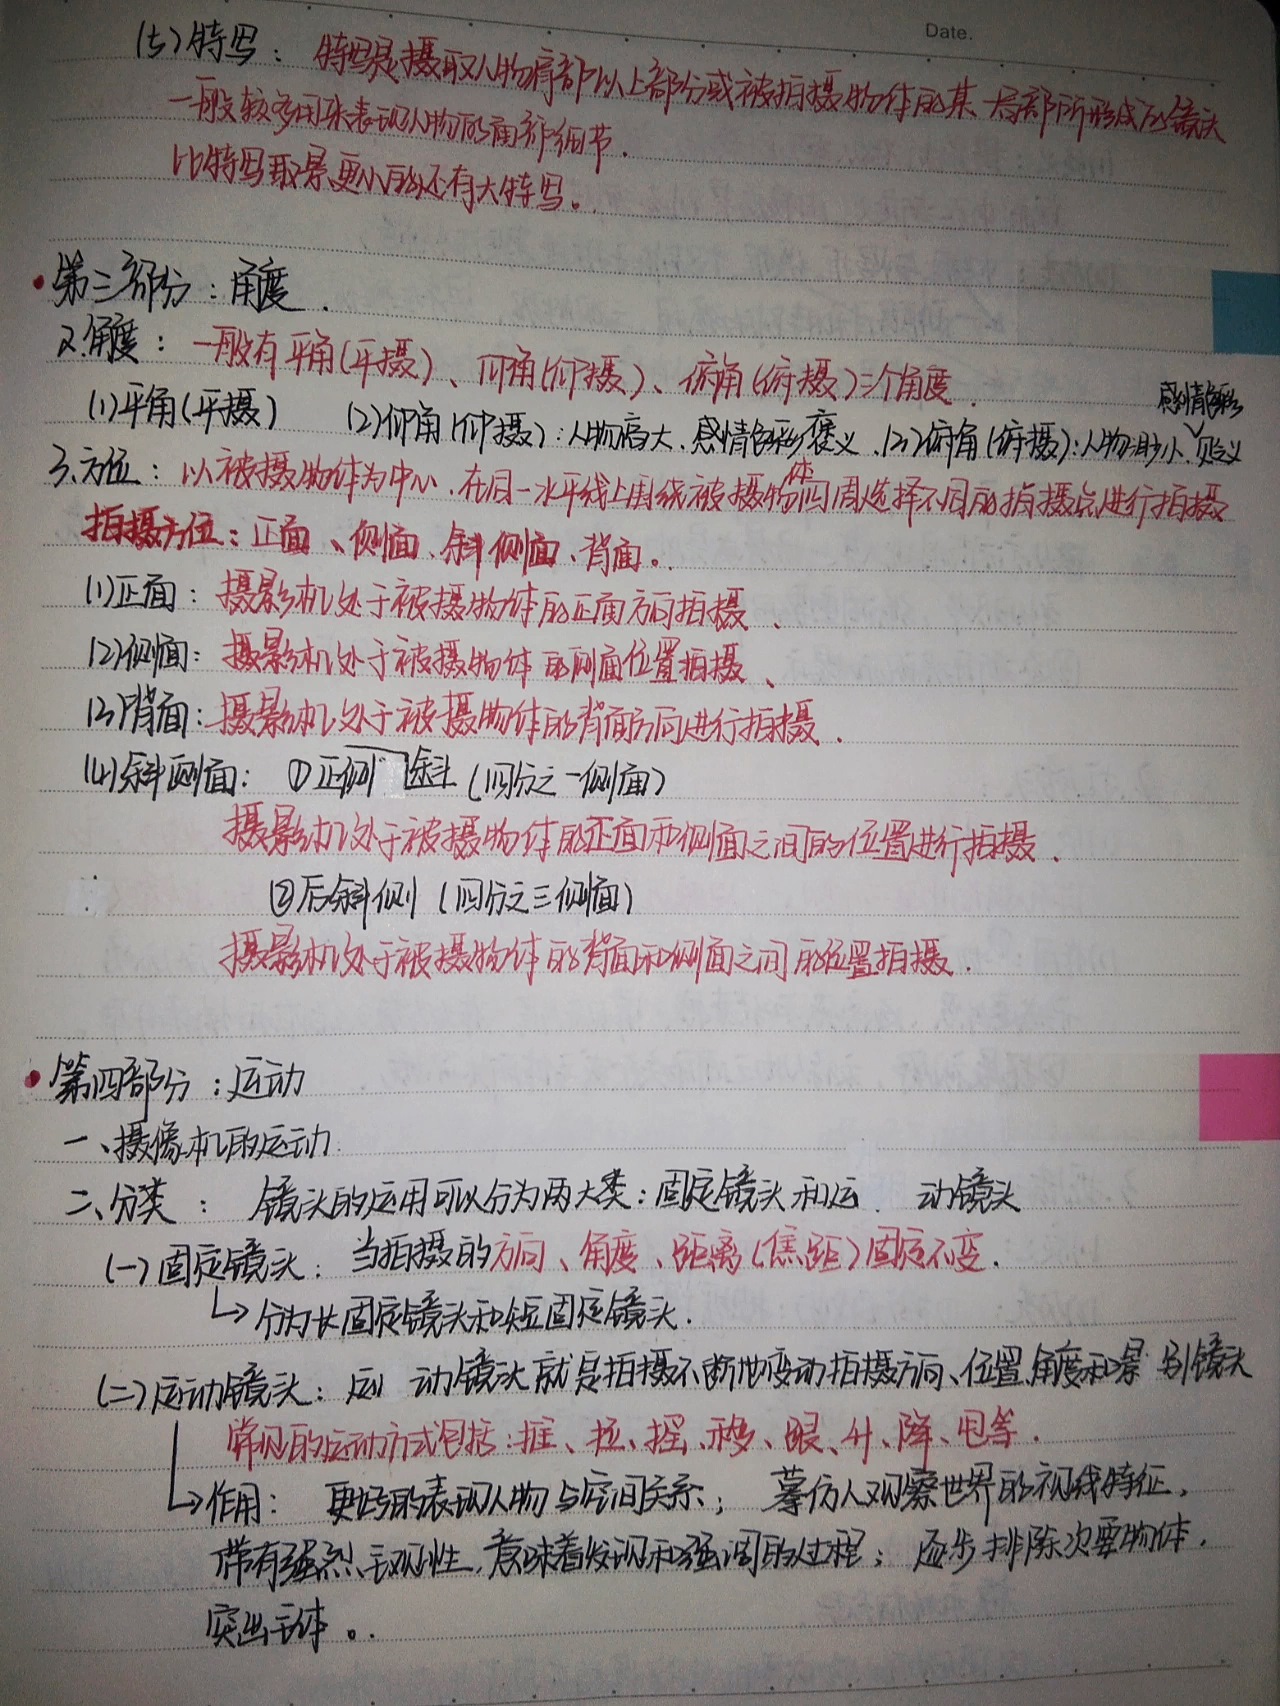 Date.
(七)特写：特写是摄取人物肩部以上部分或被拍摄物体的某一局部所形成的镜头
一般较多用来表现人物的面部细节.
比特写取景更小的还有大特写。
第三部分：角度.
2.角度：一般有平角(平摄)、仰角(仰摄)、俯角(俯摄)三个角度.
感情色彩
(1)平角(平摄) (2)仰角(仰摄)：人物高大、感情色彩褒义.(3)俯角(俯摄)：人物渺小、贬义
3.方位：以被摄物体为中心.在同一水平线上围绕被摄物体四周选择不同的拍摄点进行拍摄
拍摄方位：正面、侧面、斜侧面、背面。
(1)正面：摄影机处于被摄物体的正面方向拍摄、
(2)侧面：摄影机处于被摄物体的侧面位置拍摄、
(3)背面：摄影机处于被摄物体的背面方向进行拍摄.
(4)斜侧面：①正侧斜(四分之一侧面)
摄影机处于被摄物体的正面和侧面之间的位置进行拍摄.
②后斜侧(四分之三侧面)
摄影机处于被摄物体的背面和侧面之间的位置拍摄.
第四部分：运动
一、摄像机的运动
二、分类：镜头的应用可以分为两大类：固定镜头和运 动镜头
(一)固定镜头：当拍摄的方向、角度、距离(焦距)固定不变.
分为长固定镜头和短固定镜头.
(二)运动镜头：运 动镜头就是拍摄不断地变动拍摄方向、位置、角度和景 别镜头
常见的运动方式包括：推、拉、摇、移、跟、升、降、甩等.
作用：更好的表现人物与空间关系；摹仿人观察世界的视线特征,
带有强烈主观性,意味着发现和强调的过程；逐步排除次要物体.
突出主体。